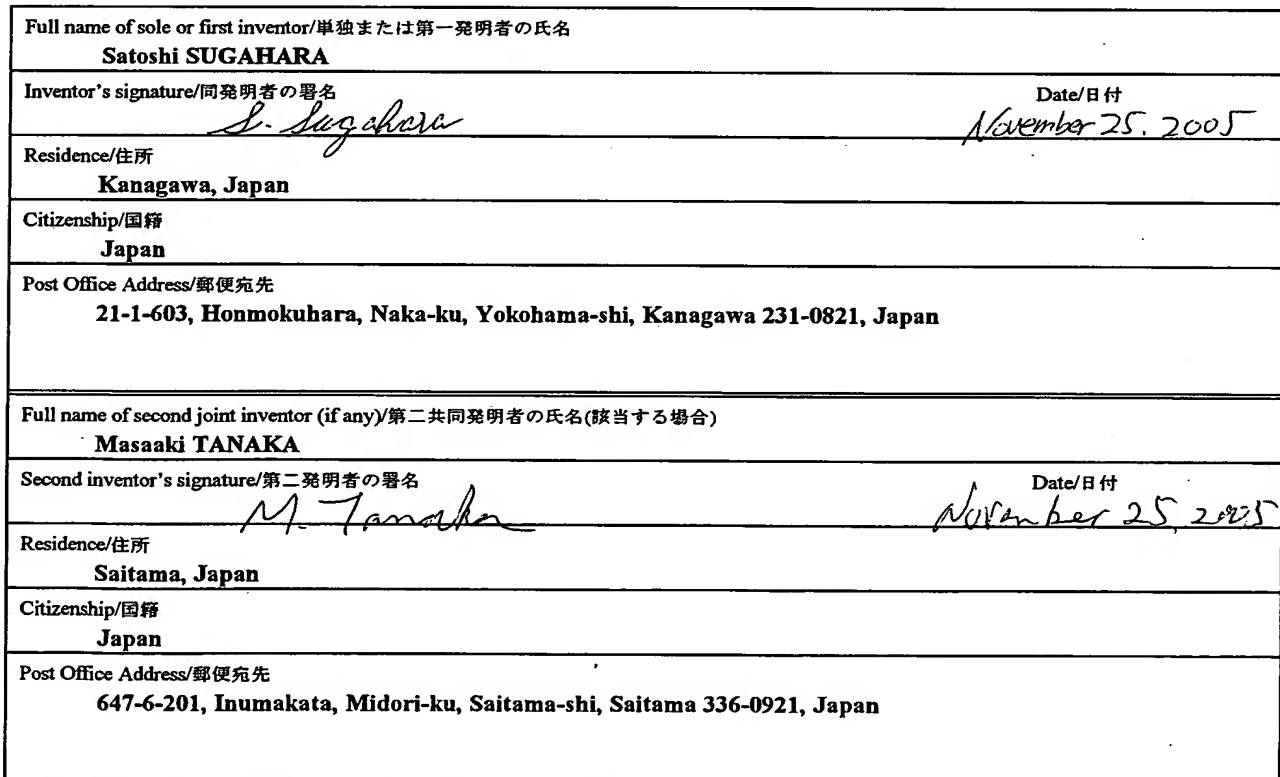 Full name of sole or first inventor/単独または第一発明者の氏名
Satoshi SUGAHARA
Inventor's signature/同発明者の署名 Date/日付
S. Sugahara November 25. 2005
Residence/住所
Kanagawa, Japan
Citizenship/国籍
Japan
Post Office Address/郵便宛先
21-1-603, Honmokuhara, Naka-ku, Yokohama-shi, Kanagawa 231-0821, Japan
Full name of second joint inventor (if any)/第二共同発明者の氏名(該当する場合)
Masaaki TANAKA
Second inventor's signature/第二発明者の署名 Date/日付
M. Tanaka November 25, 2005
Residence/住所
Saitama, Japan
Citizenship/国籍
Japan
Post Office Address/郵便宛先
647-6-201, Inumakata, Midori-ku, Saitama-shi, Saitama 336-0921, Japan